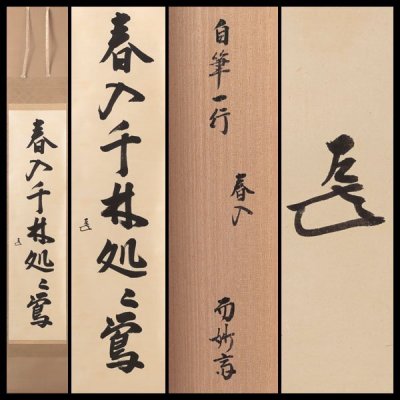 春入千林処〻鶯
春入千林処〻鶯
自筆一行
春入
而妙斎